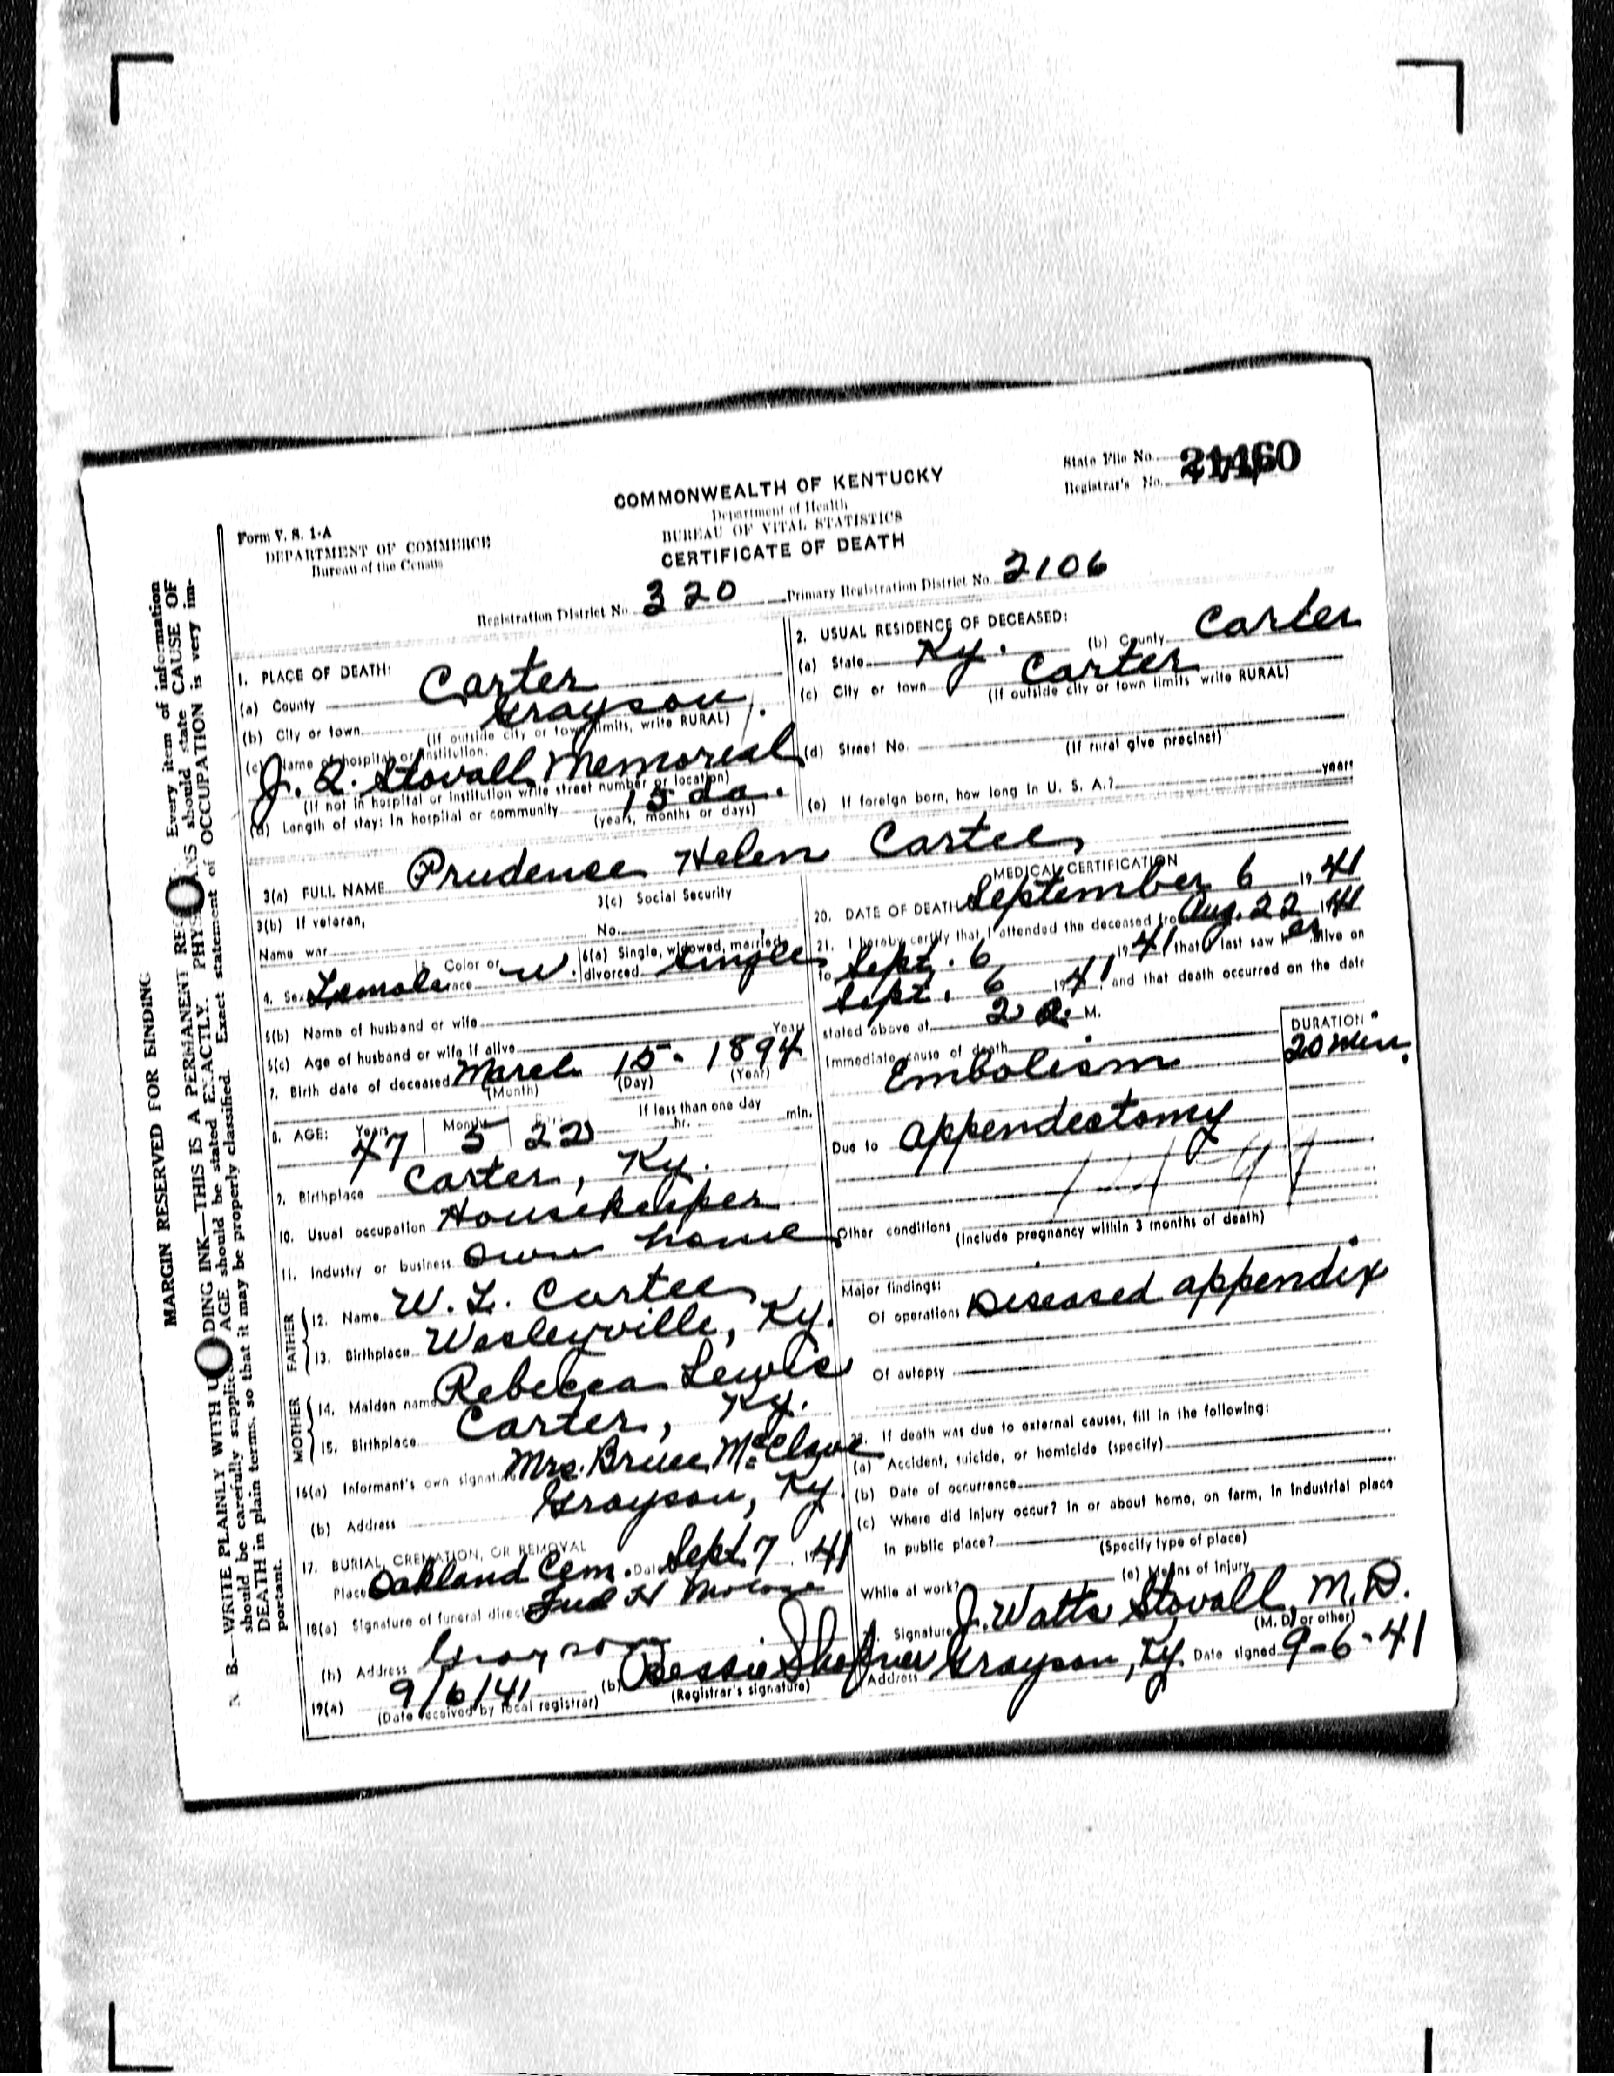 State File No. 21460
Registrar's No.
COMMONWEALTH OF KENTUCKY
Department of Health
BUREAU OF VITAL STATISTICS
CERTIFICATE OF DEATH
Form V. S. 1-A
DEPARTMENT OF COMMERCE
Bureau of the Census
Registration District No. 320 Primary Registration District No. 2106
MARGIN RESERVED FOR BINDING
N. B.—WRITE PLAINLY WITH UNFADING INK—THIS IS A PERMANENT RECORD. Every item of information
should be carefully supplied. AGE should be stated EXACTLY. PHYSICIANS should state CAUSE OF
DEATH in plain terms, so that it may be properly classified. Exact statement of OCCUPATION is very im-
portant.
1. PLACE OF DEATH:
(a) County Carter
(b) City or town Grayson
(If outside city or town limits, write RURAL)
(c) Name of hospital or institution:
J. Q. Stovall Memorial
(If not in hospital or institution write street number or location)
(d) Length of stay: In hospital or community 15 da.
(years, months or days)
2. USUAL RESIDENCE OF DECEASED:
(a) State Ky. (b) County Carter
(c) City or town Carter
(If outside city or town limits write RURAL)
(d) Street No.
(If rural give precinct)
(e) If foreign born, how long in U. S. A.? years
3(a) FULL NAME Prudence Helen Cartee
3(b) If veteran, 3(c) Social Security
Name war No.
4. Sex Female Color or race W. 6(a) Single, widowed, married, divorced Single
6(b) Name of husband or wife
6(c) Age of husband or wife if alive Years
7. Birth date of deceased March 15 - 1894
(Month) (Day) (Year)
8. AGE: Years 47 Months 5 Days 22 If less than one day hr. min.
9. Birthplace Carter, Ky.
10. Usual occupation Housekeeper
11. Industry or business own home
FATHER
12. Name W. L. Cartee
13. Birthplace Wesleyville, Ky.
MOTHER
14. Maiden name Rebecca Lewis
15. Birthplace Carter, Ky.
16(a) Informant's own signature Mrs. Bruce McClave
(b) Address Grayson, Ky.
17. BURIAL, CREMATION, OR REMOVAL
Place Oakland Cem. Date Sept. 7 1941
18(a) Signature of funeral director
(b) Address Grayson
19(a) 9/6/41 (b) Bessie
(Date received by local registrar) (Registrar's signature)
MEDICAL CERTIFICATION
20. DATE OF DEATH September 6 1941
21. I hereby certify that I attended the deceased from Aug. 22 1941
to Sept. 6 1941 that I last saw her alive on
Sept. 6 1941 and that death occurred on the date
stated above at 2 a. M.
Immediate cause of death DURATION
Embolism 20 min.
Due to appendectomy
Other conditions
(Include pregnancy within 3 months of death)
Major findings:
Of operations Diseased appendix
Of autopsy
22. If death was due to external causes, fill in the following:
(a) Accident, suicide, or homicide (specify)
(b) Date of occurrence
(c) Where did injury occur? In or about home, on farm, in industrial place
In public place?
(Specify type of place)
While at work? (e) Means of injury
Signature J. Watts Stovall, M.D.
(M. D. or other)
Address Grayson, Ky. Date signed 9-6-41